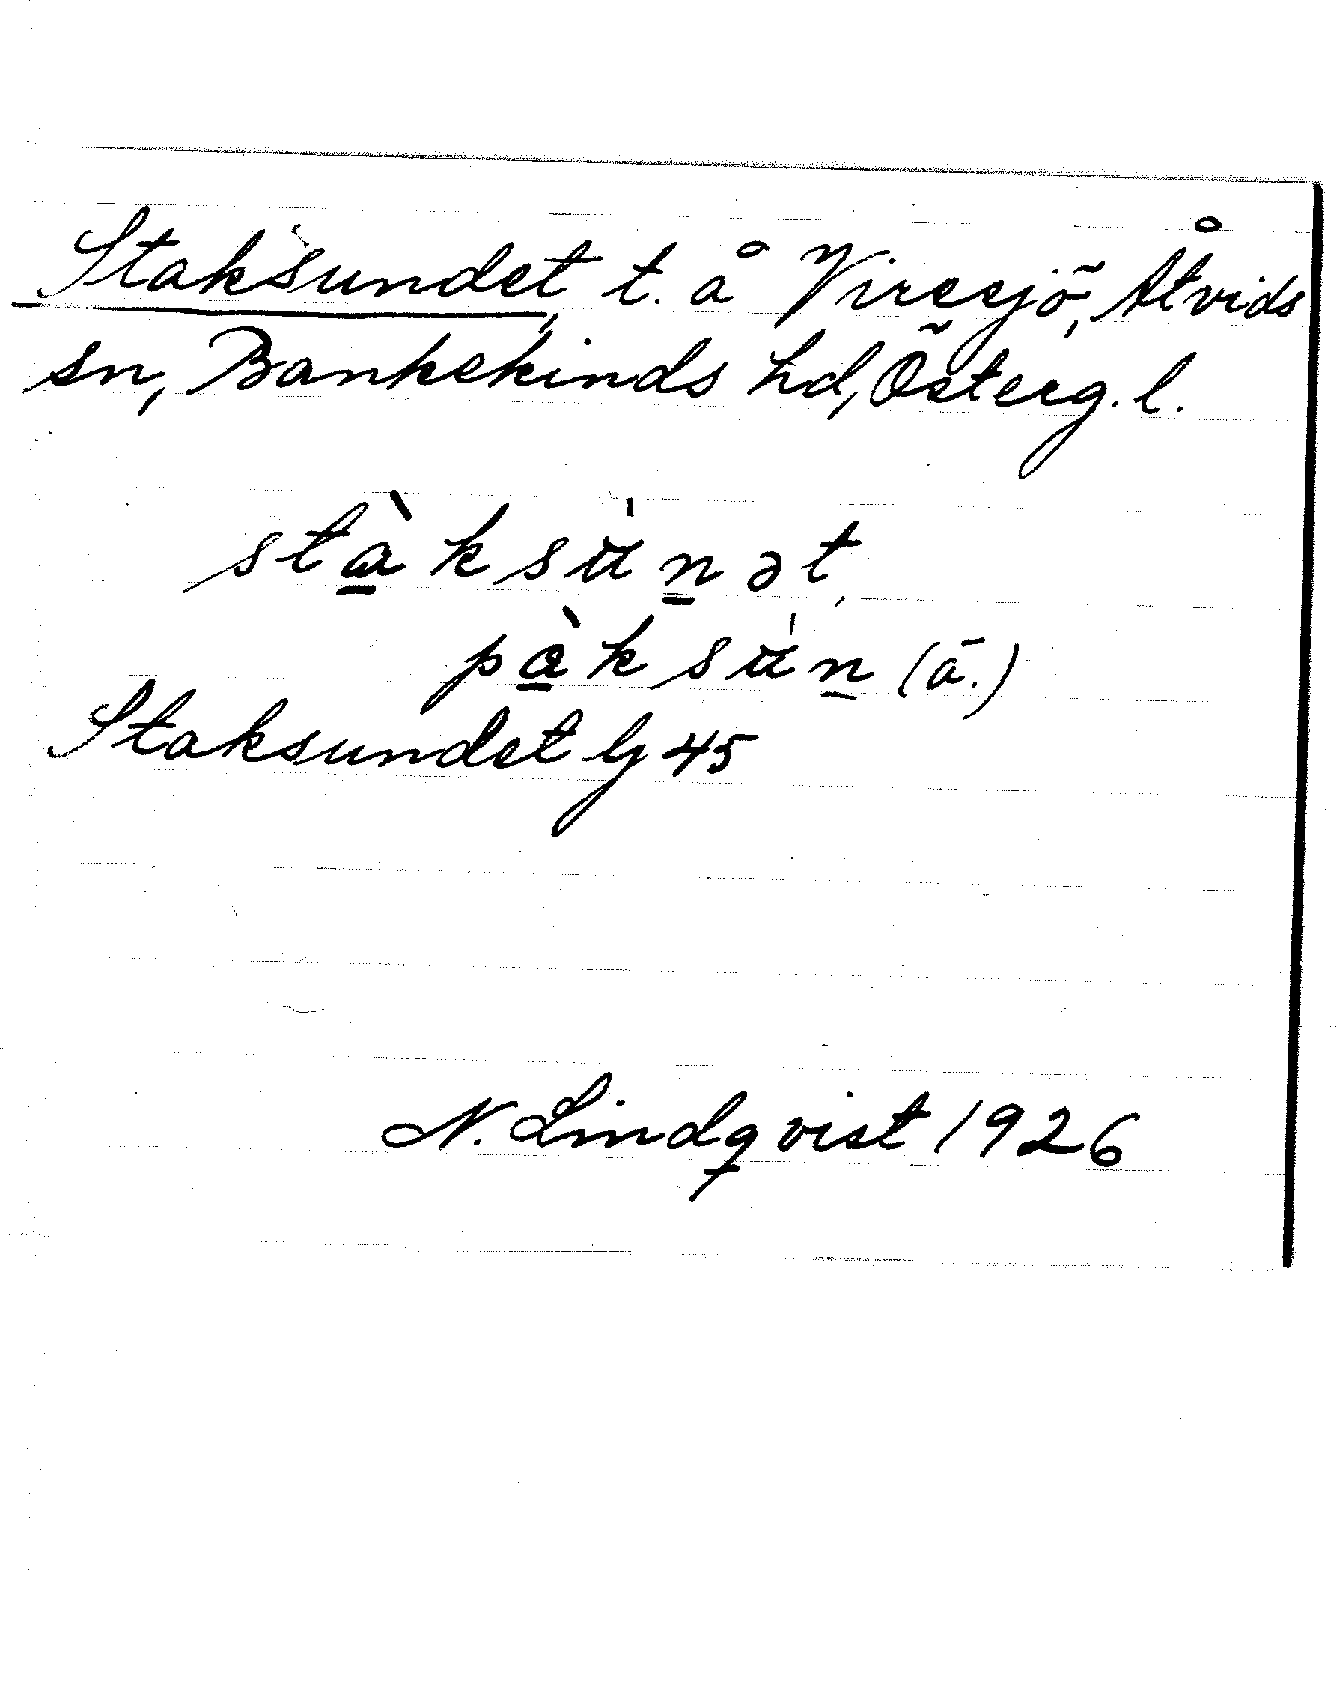 Staksundet, t. å Viresjö, Åtvids
sn, Bankekinds hd, Österg. l.
stà̱ksu̍n̠ət,
pà̱ksu̍n̠ (ā.)
Staksundet Lj 45
N. Lindqvist 1926